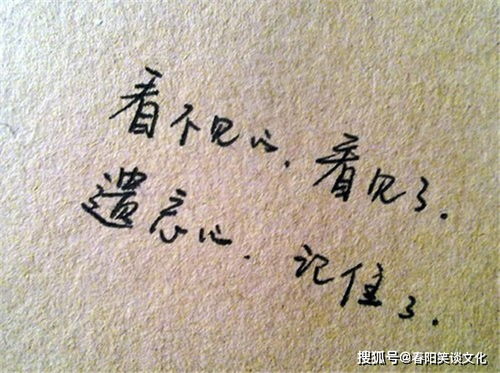 看不见的，看见了.
遗忘的.记住了.
搜狐号@春阳笑谈文化